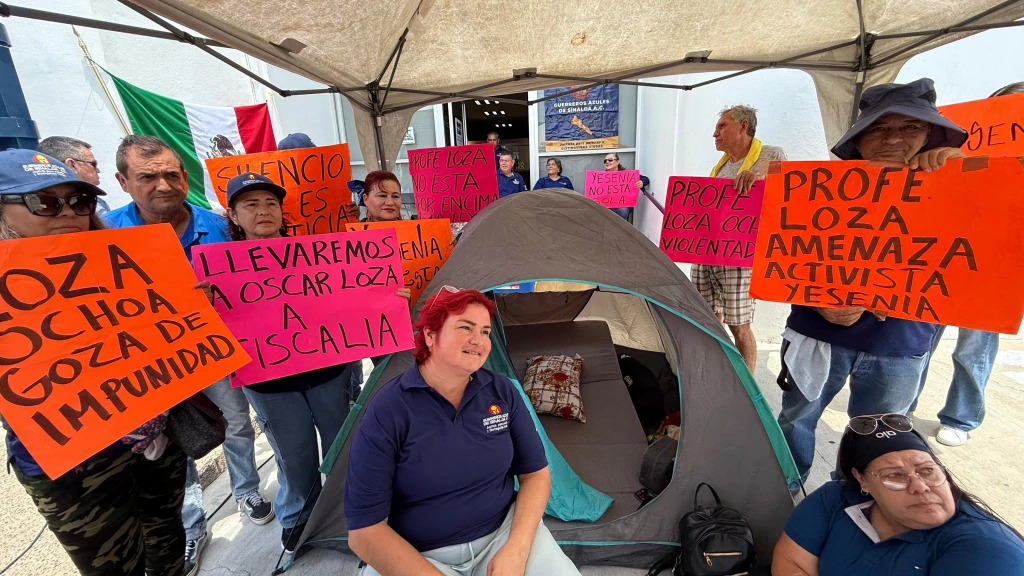 LOZA
OCHOA
GOZA DE
IMPUNIDAD
LLEVAREMOS
A OSCAR LOZA
A
FISCALIA
SILENCIO
ES
PROFE LOZA
NO ESTA
POR ENCIMA
GUERREROS AZULES
DE SINALOA A.C.
YESENIA
NO ESTA
SOLA
PROFE
LOZA OCH
VIOLENTAD
PROFE
LOZA
AMENAZA
ACTIVISTA
YESENIA